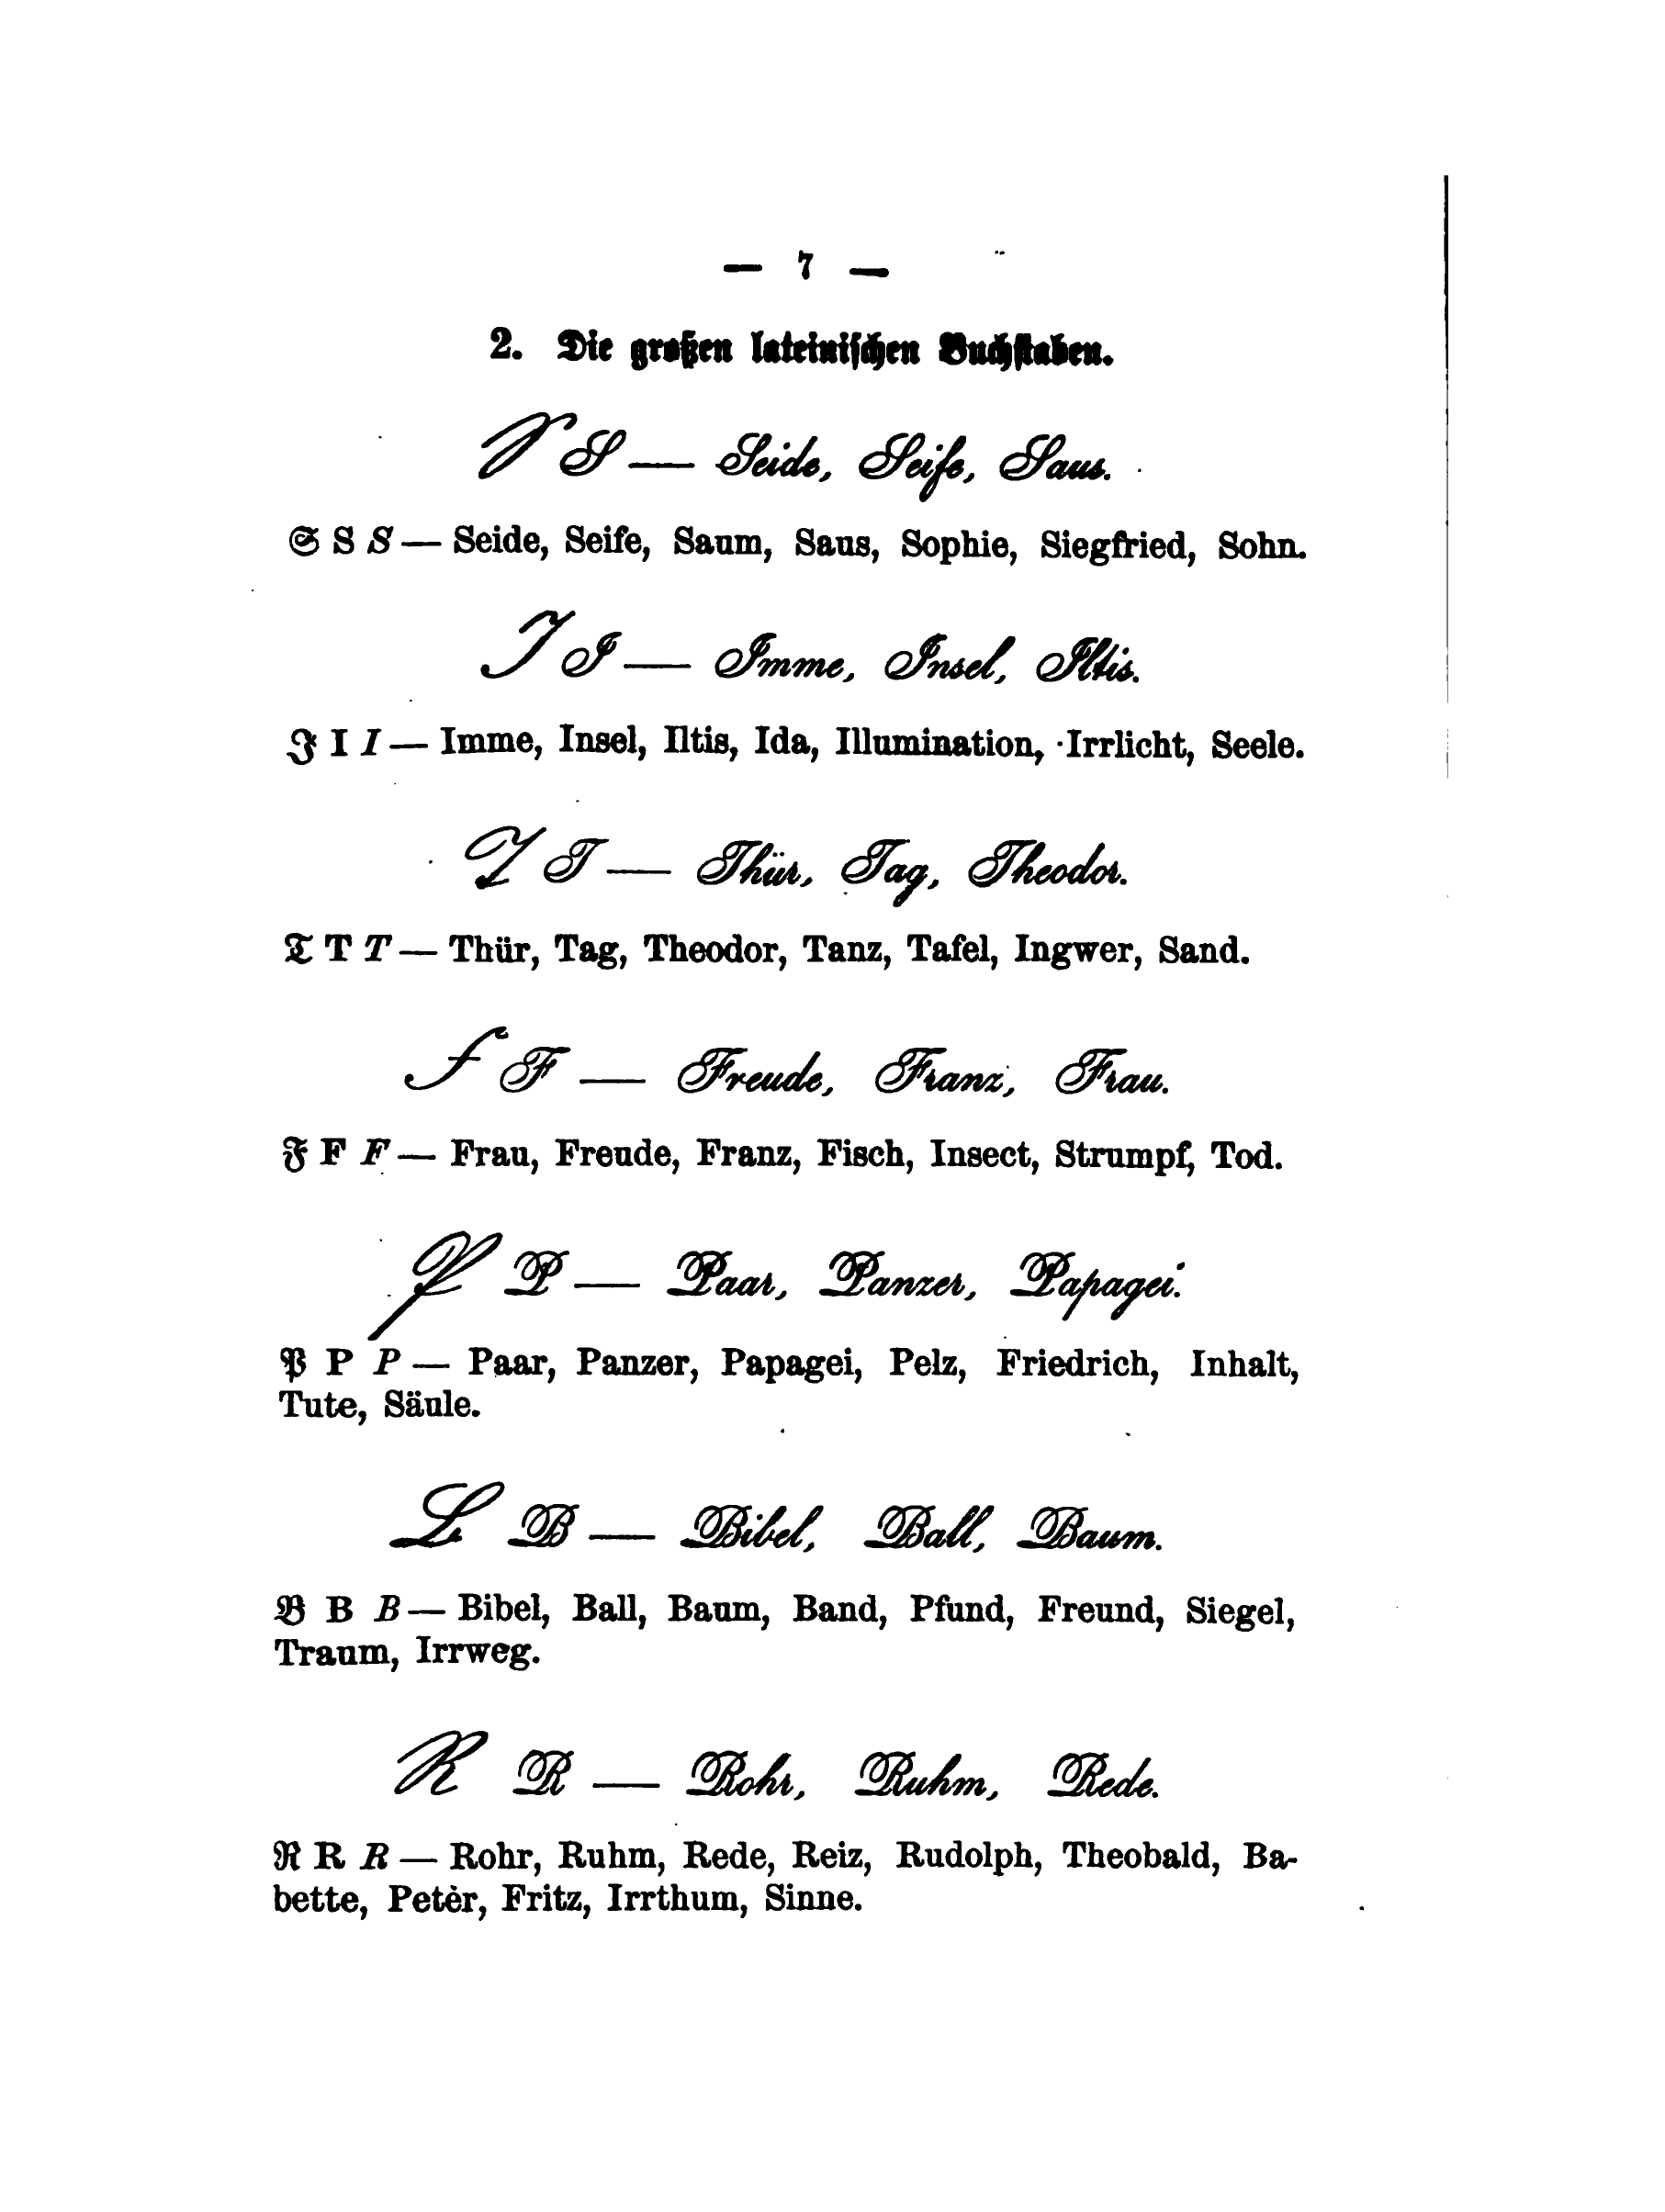 — 7 —
2. Die großen lateinischen Buchstaben.
S S — Seide, Seife, Saus.
S S S — Seide, Seife, Saum, Saus, Sophie, Siegfried, Sohn.
I I — Imme, Insel, Iltis.
I I I — Imme, Insel, Iltis, Ida, Illumination, Irrlicht, Seele.
T T — Thür, Tag, Theodor.
T T T — Thür, Tag, Theodor, Tanz, Tafel, Ingwer, Sand.
F F — Freude, Franz, Frau.
F F F — Frau, Freude, Franz, Fisch, Insect, Strumpf, Tod.
P P — Paar, Panzer, Papagei.
P P P — Paar, Panzer, Papagei, Pelz, Friedrich, Inhalt,
Tute, Säule.
B B — Bibel, Ball, Baum.
B B B — Bibel, Ball, Baum, Band, Pfund, Freund, Siegel,
Traum, Irrweg.
R R — Rohr, Ruhm, Rede.
R R R — Rohr, Ruhm, Rede, Reiz, Rudolph, Theobald, Ba-
bette, Peter, Fritz, Irrthum, Sinne.